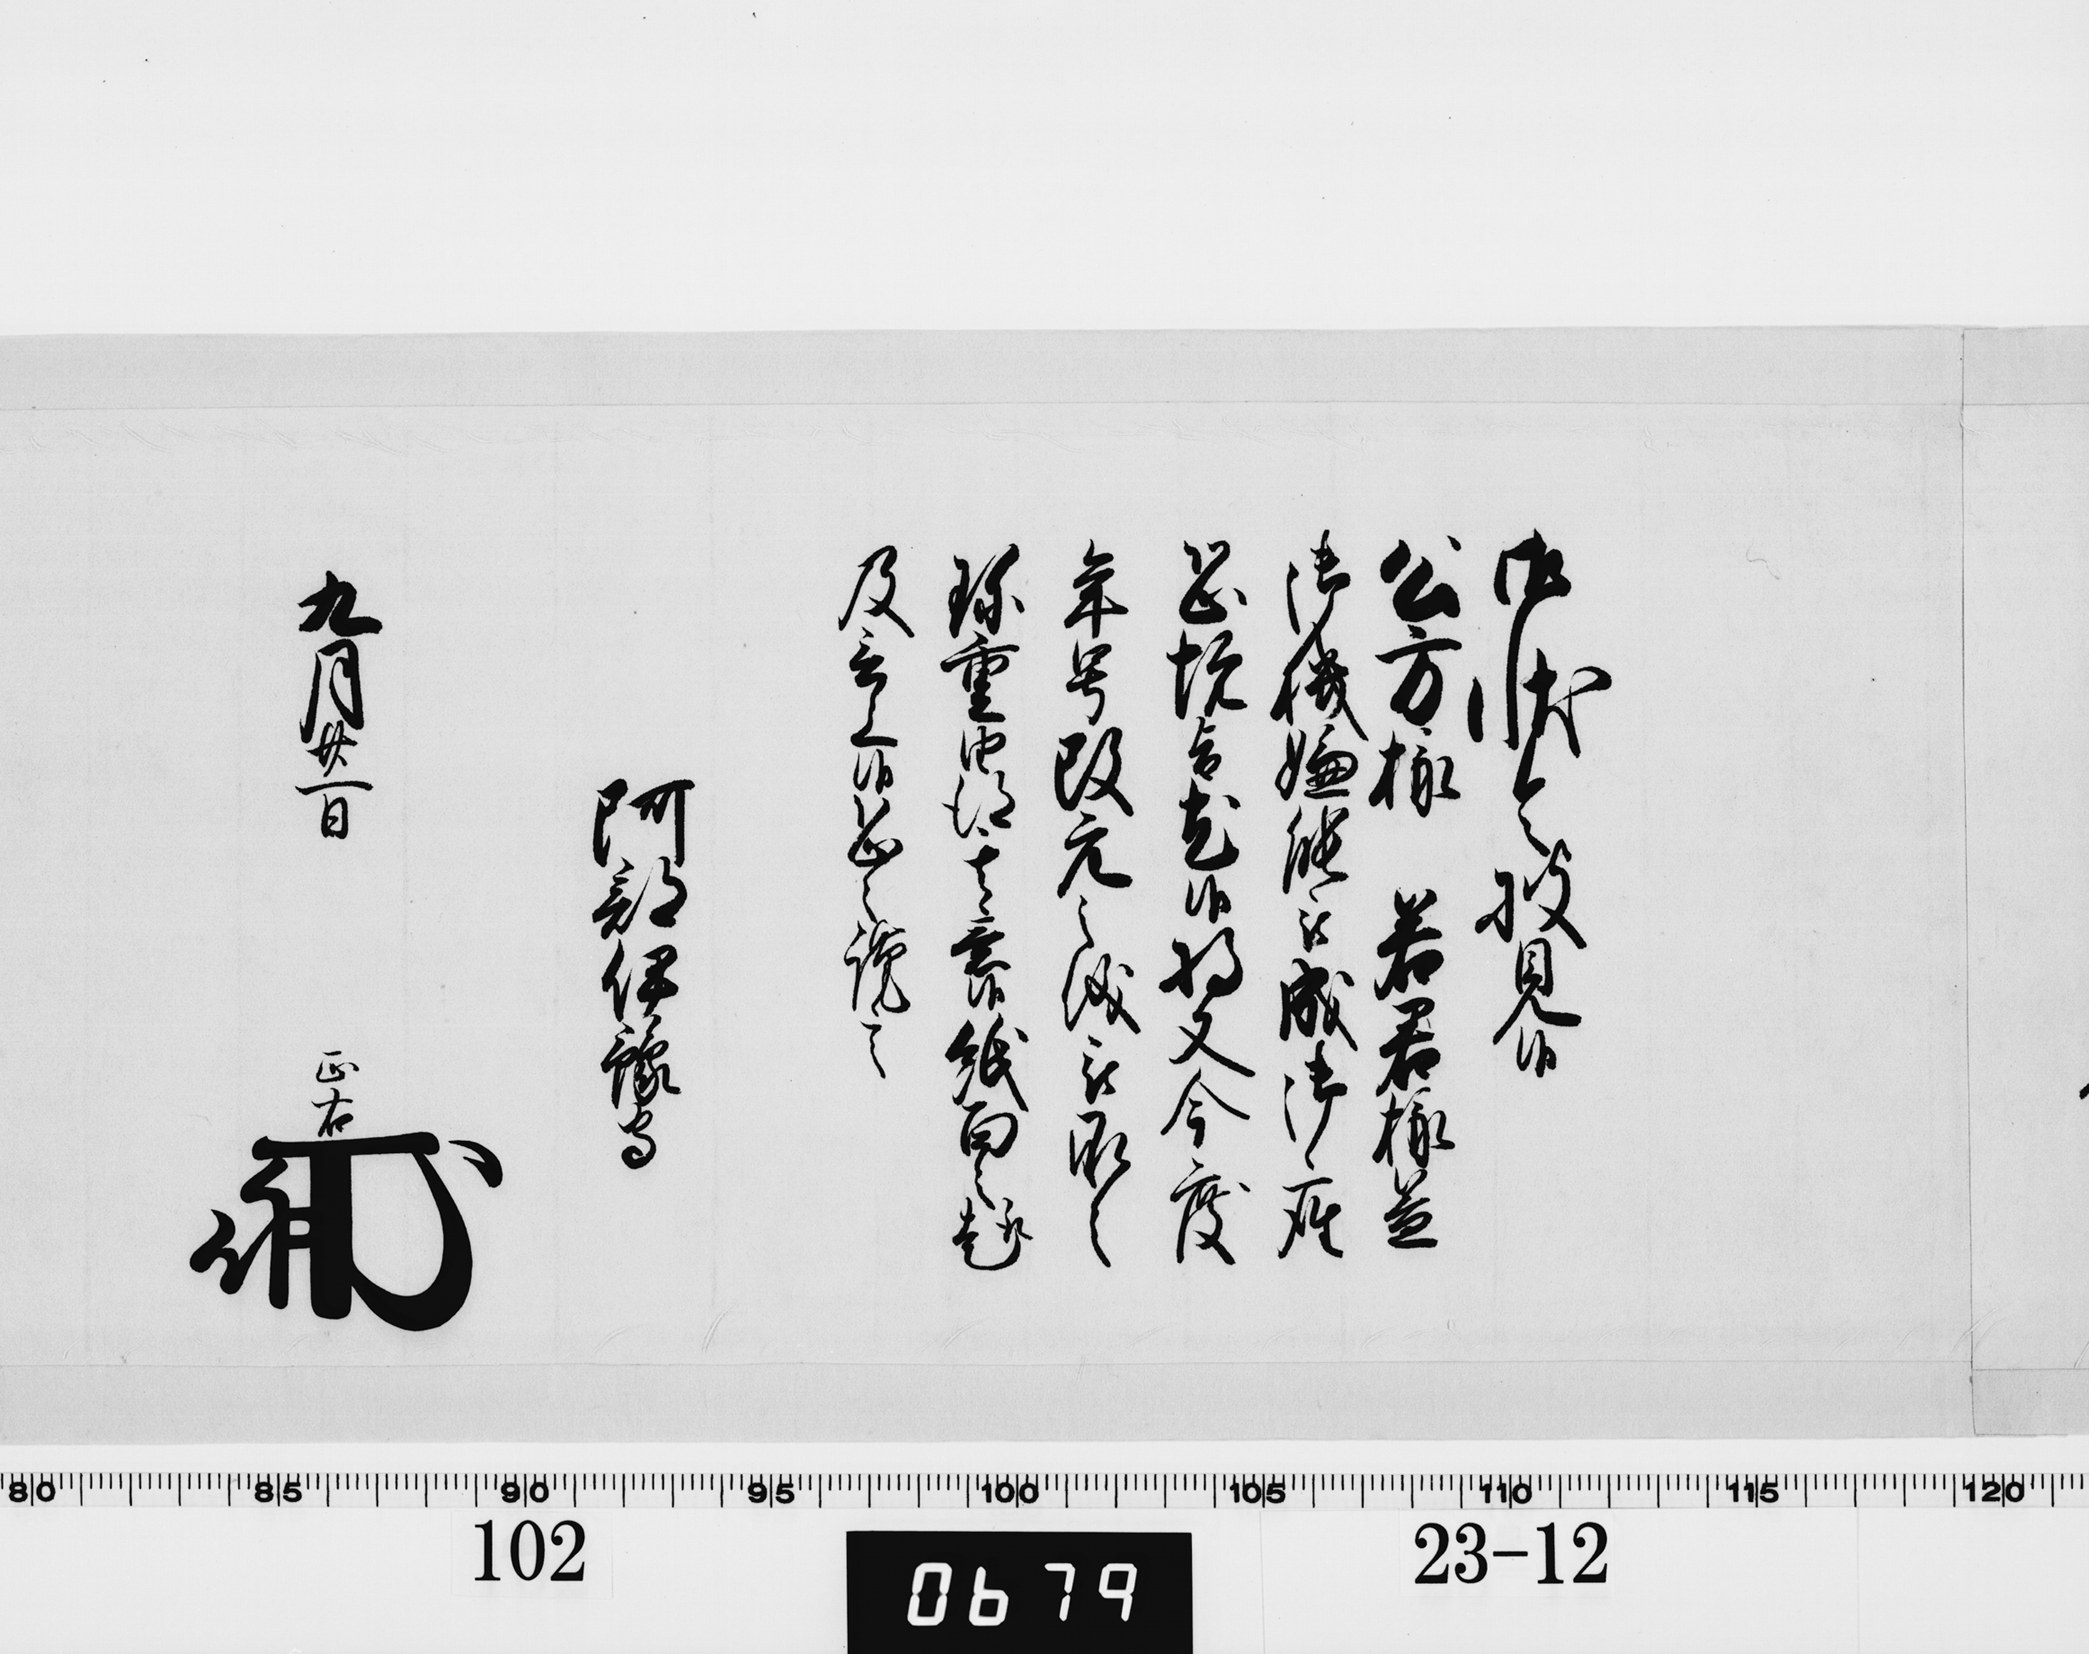 御状令披見候
公方様 若君様益
御機嫌能被成御座
恐悦旨尤候将又今度
年号改元之儀被承之
珍重由得其意候紙面之趣
及言上候恐々謹言
阿部伊豫守
九月廿一日
正右
80 85 90 95 100 105 110 115 120
102
0679
23-12